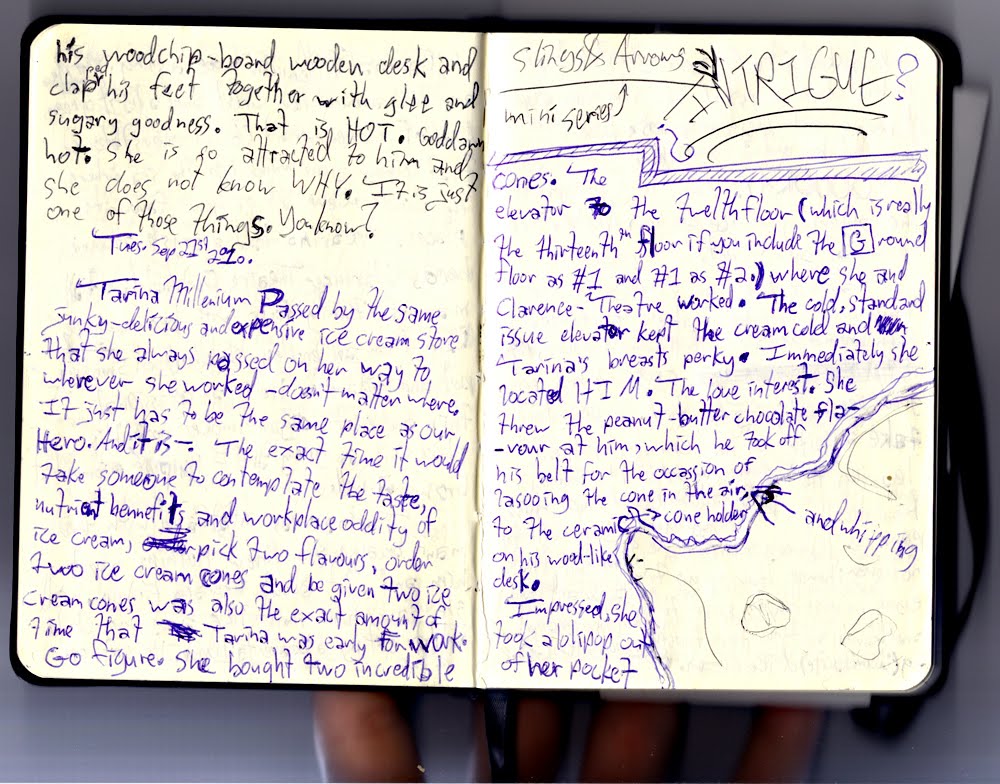 his woodchip-board wooden desk and
clapped his feet together with glee and
sugary goodness. That is HOT. Goddamn
hot. She is so attracted to him and
she does not know WHY. It is just
one of those things. You know?
Tues. Sep 21st 2010.
Tarina Millenium Passed by the same
junky-delicious and expensive ice cream store
that she always passed on her way to
wherever she worked - doesn't matter where.
It just has to be the same place as our
Hero. And it is -. The exact time it would
take someone to contemplate the taste,
nutrient bennefits and workplace oddity of
ice cream, pick two flavours, order
two ice cream cones and be given two ice
cream cones was also the exact amount of
time that Tarina was early for work.
Go figure. She bought two incredible
slings & Arrows
mini series
INTRIGUE?
cones. The
elevator to the twelth floor (which is really
the thirteenth th floor if you include the G round
floor as #1 and #1 as #2.) where she and
Clarence-Theatre worked. The cold, standard
issue elevator kept the cream cold and
Tarina's breasts perky. Immediately she
located HIM. The love interest. She
threw the peanut-butter chocolate fla-
-vour at him, which he took off
his belt for the occassion of
lasooing the cone in the air,
and whipping
to the ceramic → cone holder
on his wood-like
desk.
Impressed, she
took a lolipop out
of her pocket